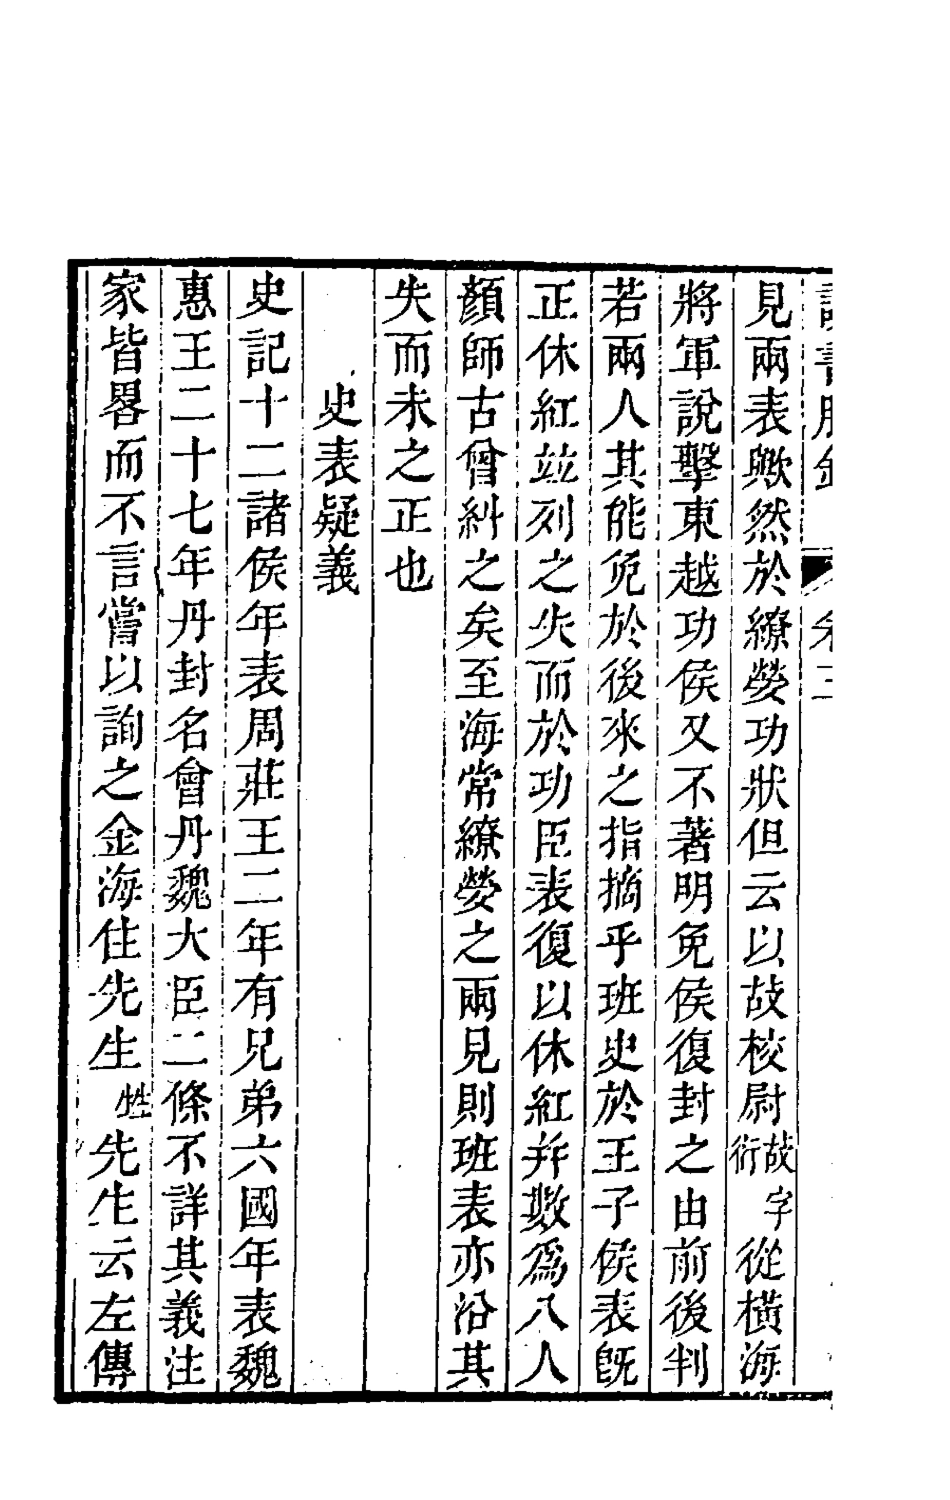 見兩表歟然於繚嫈功狀但云以故校尉故字衍從橫海
將軍說擊東越功侯又不著明免侯復封之由前後判
若兩人其能免於後來之指摘乎班史於王子侯表旣
正休紅並列之失而於功臣表復以休紅并數爲八人
顏師古曾糾之矣至海常繚嫈之兩見則班表亦沿其
失而未之正也
史表疑義
史記十二諸侯年表周莊王二年有兄弟六國年表魏
惠王二十七年丹封名會丹魏大臣二條不詳其義注
家皆畧而不言嘗以詢之金海住先生甡先生云左傳